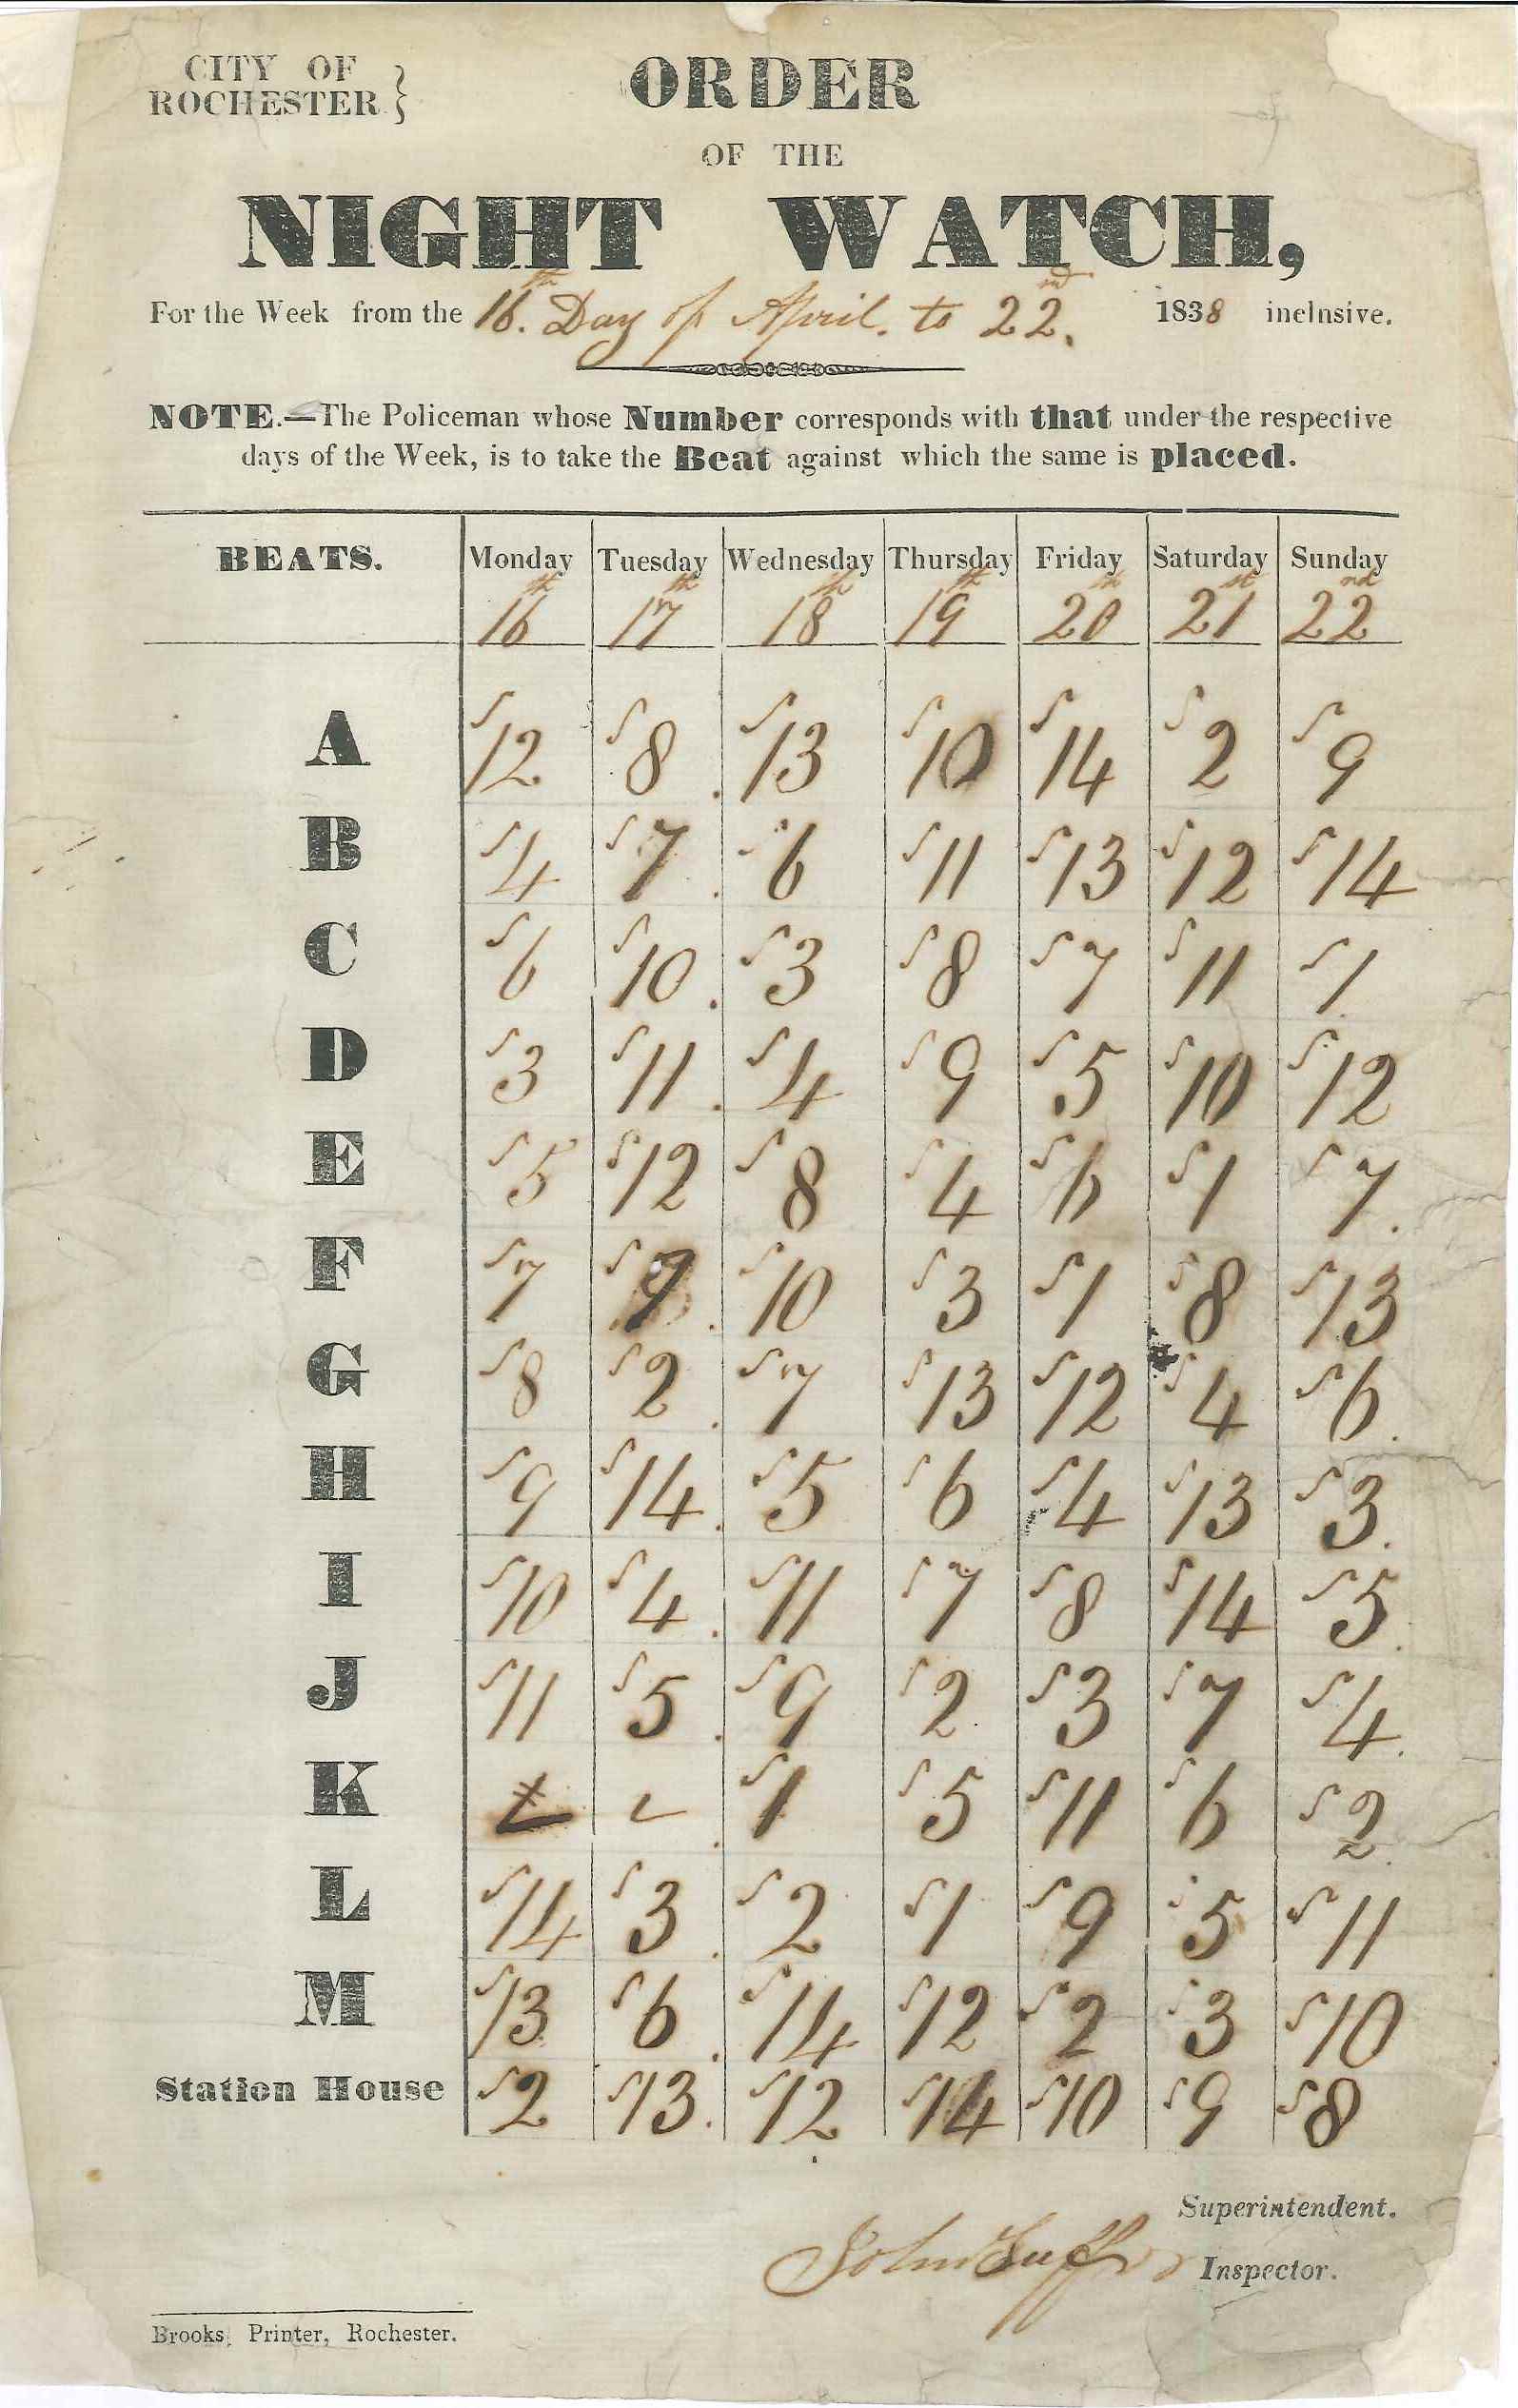 CITY OF
ROCHESTER }
ORDER
OF THE
NIGHT WATCH,
For the Week from the 16th. Day of April. to 22nd. 1838 inclnsive.
NOTE.—The Policeman whose Number corresponds with that under the respective
days of the Week, is to take the Beat against which the same is placed.
BEATS. Monday Tuesday Wednesday Thursday Friday Saturday Sunday
16th 17th 18th 19th 20th 21st 22nd
A 12 8 13 10 14 2 9
B 4 7 6 11 13 12 14
C 6 10 3 8 7 11 1
D 3 11 4 9 5 10 12
E 5 12 8 4 6 1 7
F 7 9 10 3 1 8 13
G 8 2 7 13 12 4 6
H 9 14 5 6 4 13 3
I 10 4 11 7 8 14 5
J 11 5 9 2 3 7 4
K 1 5 11 6 2
L 14 3 2 1 9 5 11
M 13 6 14 12 2 3 10
Station House 2 13 12 14 10 9 8
Superintendent.
John Inspector.
Brooks, Printer, Rochester.